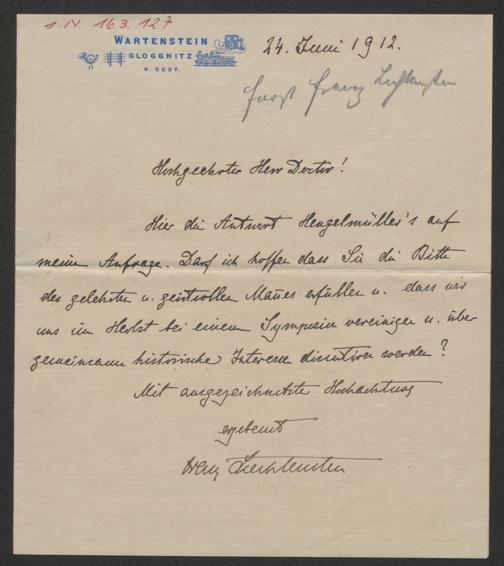 I.N. 163.127
WARTENSTEIN
GLOGGNITZ
N. OEST.
24. Juni 1912.
Fürst Franz Liechtenstein
Hochgeehrter Herr Doctor!
Hier die Antwort Hengelmüller's auf
meine Anfrage. Darf ich hoffen dass Sie die Bitte
des gelehrten u. geistvollen Mannes erfüllen u. dass wir
uns im Herbst bei einem Symposium vereinigen u. über
gemeinsame historische Interessen discutiren werden?
Mit ausgezeichneter Hochachtung
ergebenst
Franz Liechtenstein